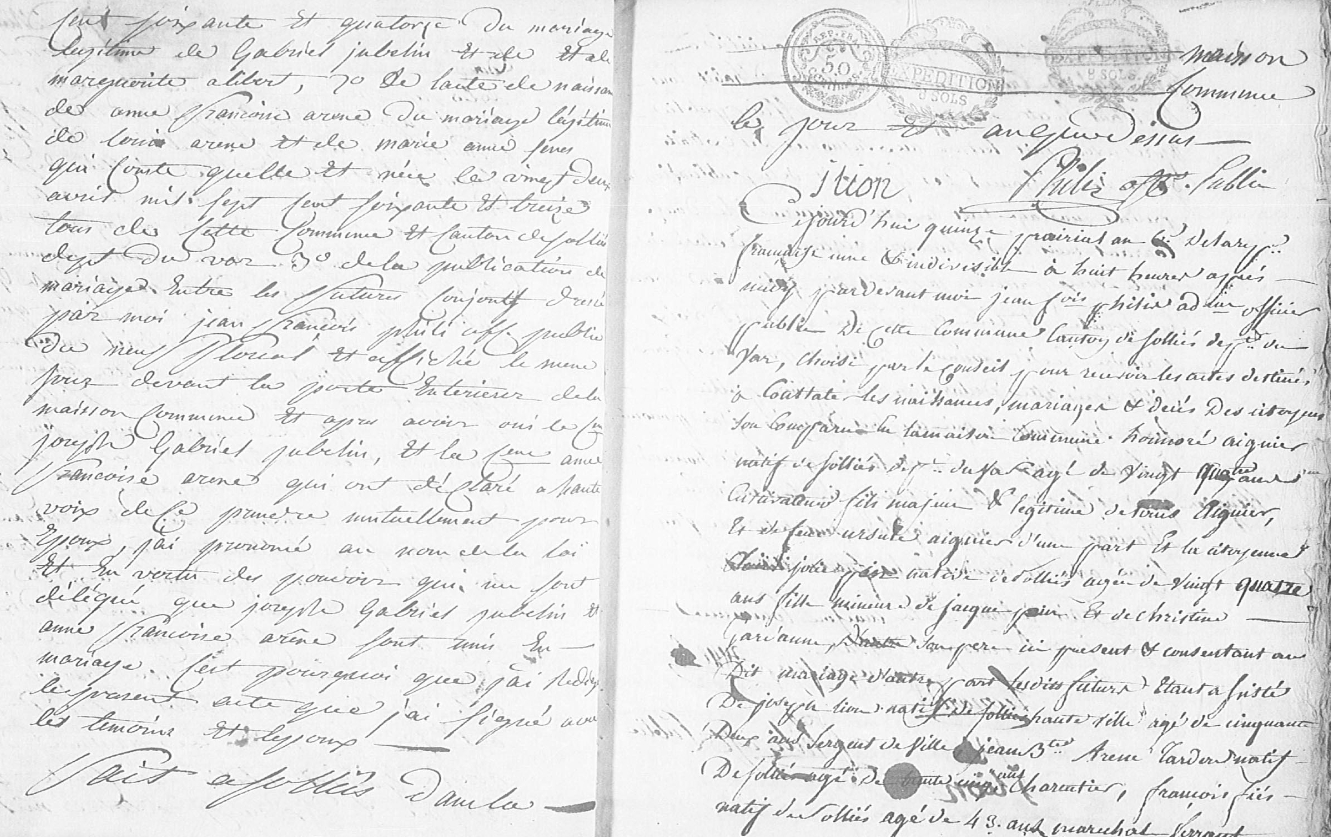 Cent soixante et quatorze du mariage
legitime de Gabriel jubelin et de et de
marguerite alibert, 2o de lacte de naissan
de anne francoise arene du mariage légitim
de louis arene et de marie anne senes
qui conste quelle et néée le vingt deux
avril mil sept cent soixante et treize
tous de cette Commune et canton de solliés
dept du var 3o de la publication de
mariage Entre les futures conjoints dressé
par moi jean francois philis off public
du neuf floreal et affichée le meme
jour devant la porte interieure de la
maison Commune et apres avoir oui le Cn
joseph Gabriel jubelin, et la cene anne
francoise arene qui ont déclaré a haute
voix de Ce prendre mutuellement pour
Epoux, j'ai prononcé au nom de la loi
Et En vertu des pouvoir qui me sont
délégué que joseph Gabriel jubelin et
anne francoise arene sont unis En
mariage. C'est pourquoi que j'ai rédigé
le present acte que j'ai signé avec
les temoins et epoux
Fait a solliés dans la
maison
Commune
le jour et an que Dessus
philis off. Public
REP. FRA.
50
EXPEDITION
8 SOLS
EXPEDITION
8 SOLS
ition
jourd'hui quinze prairial an De la rep.
francaise une & indivisible a huit heures après
midy pardevant moi jean fois philis officier
public De cette Commune Canton de solliés dept. du
Var, choisi par le Conseil pour recevoir les actes destinés
a Constater les naissances, mariages & decés Des citoyens
son Comparu En la maison commune honnoré aiguier
natif de solliés dept. du Var agé de vingt quatre ans
Cultivateur fils majeur & legitime de louis aiguier,
Et de feue ursule aiguier d'une part Et la citoyenne
julie native de solliés agée de vingt quatre
ans fille mineure de jacque Et de christine
garianne, Son pere ici present & consentant au
Dit mariage d'autre part lesdits futurs Etant assistés
De joseph lion natif de solliés haute ville agé de cinquante
Deux ans sergent de ville, jean Bte Arene natif
De solliés agé de ans Charentier, françois
natif de solliés agé de 43. ans marechal ferrant